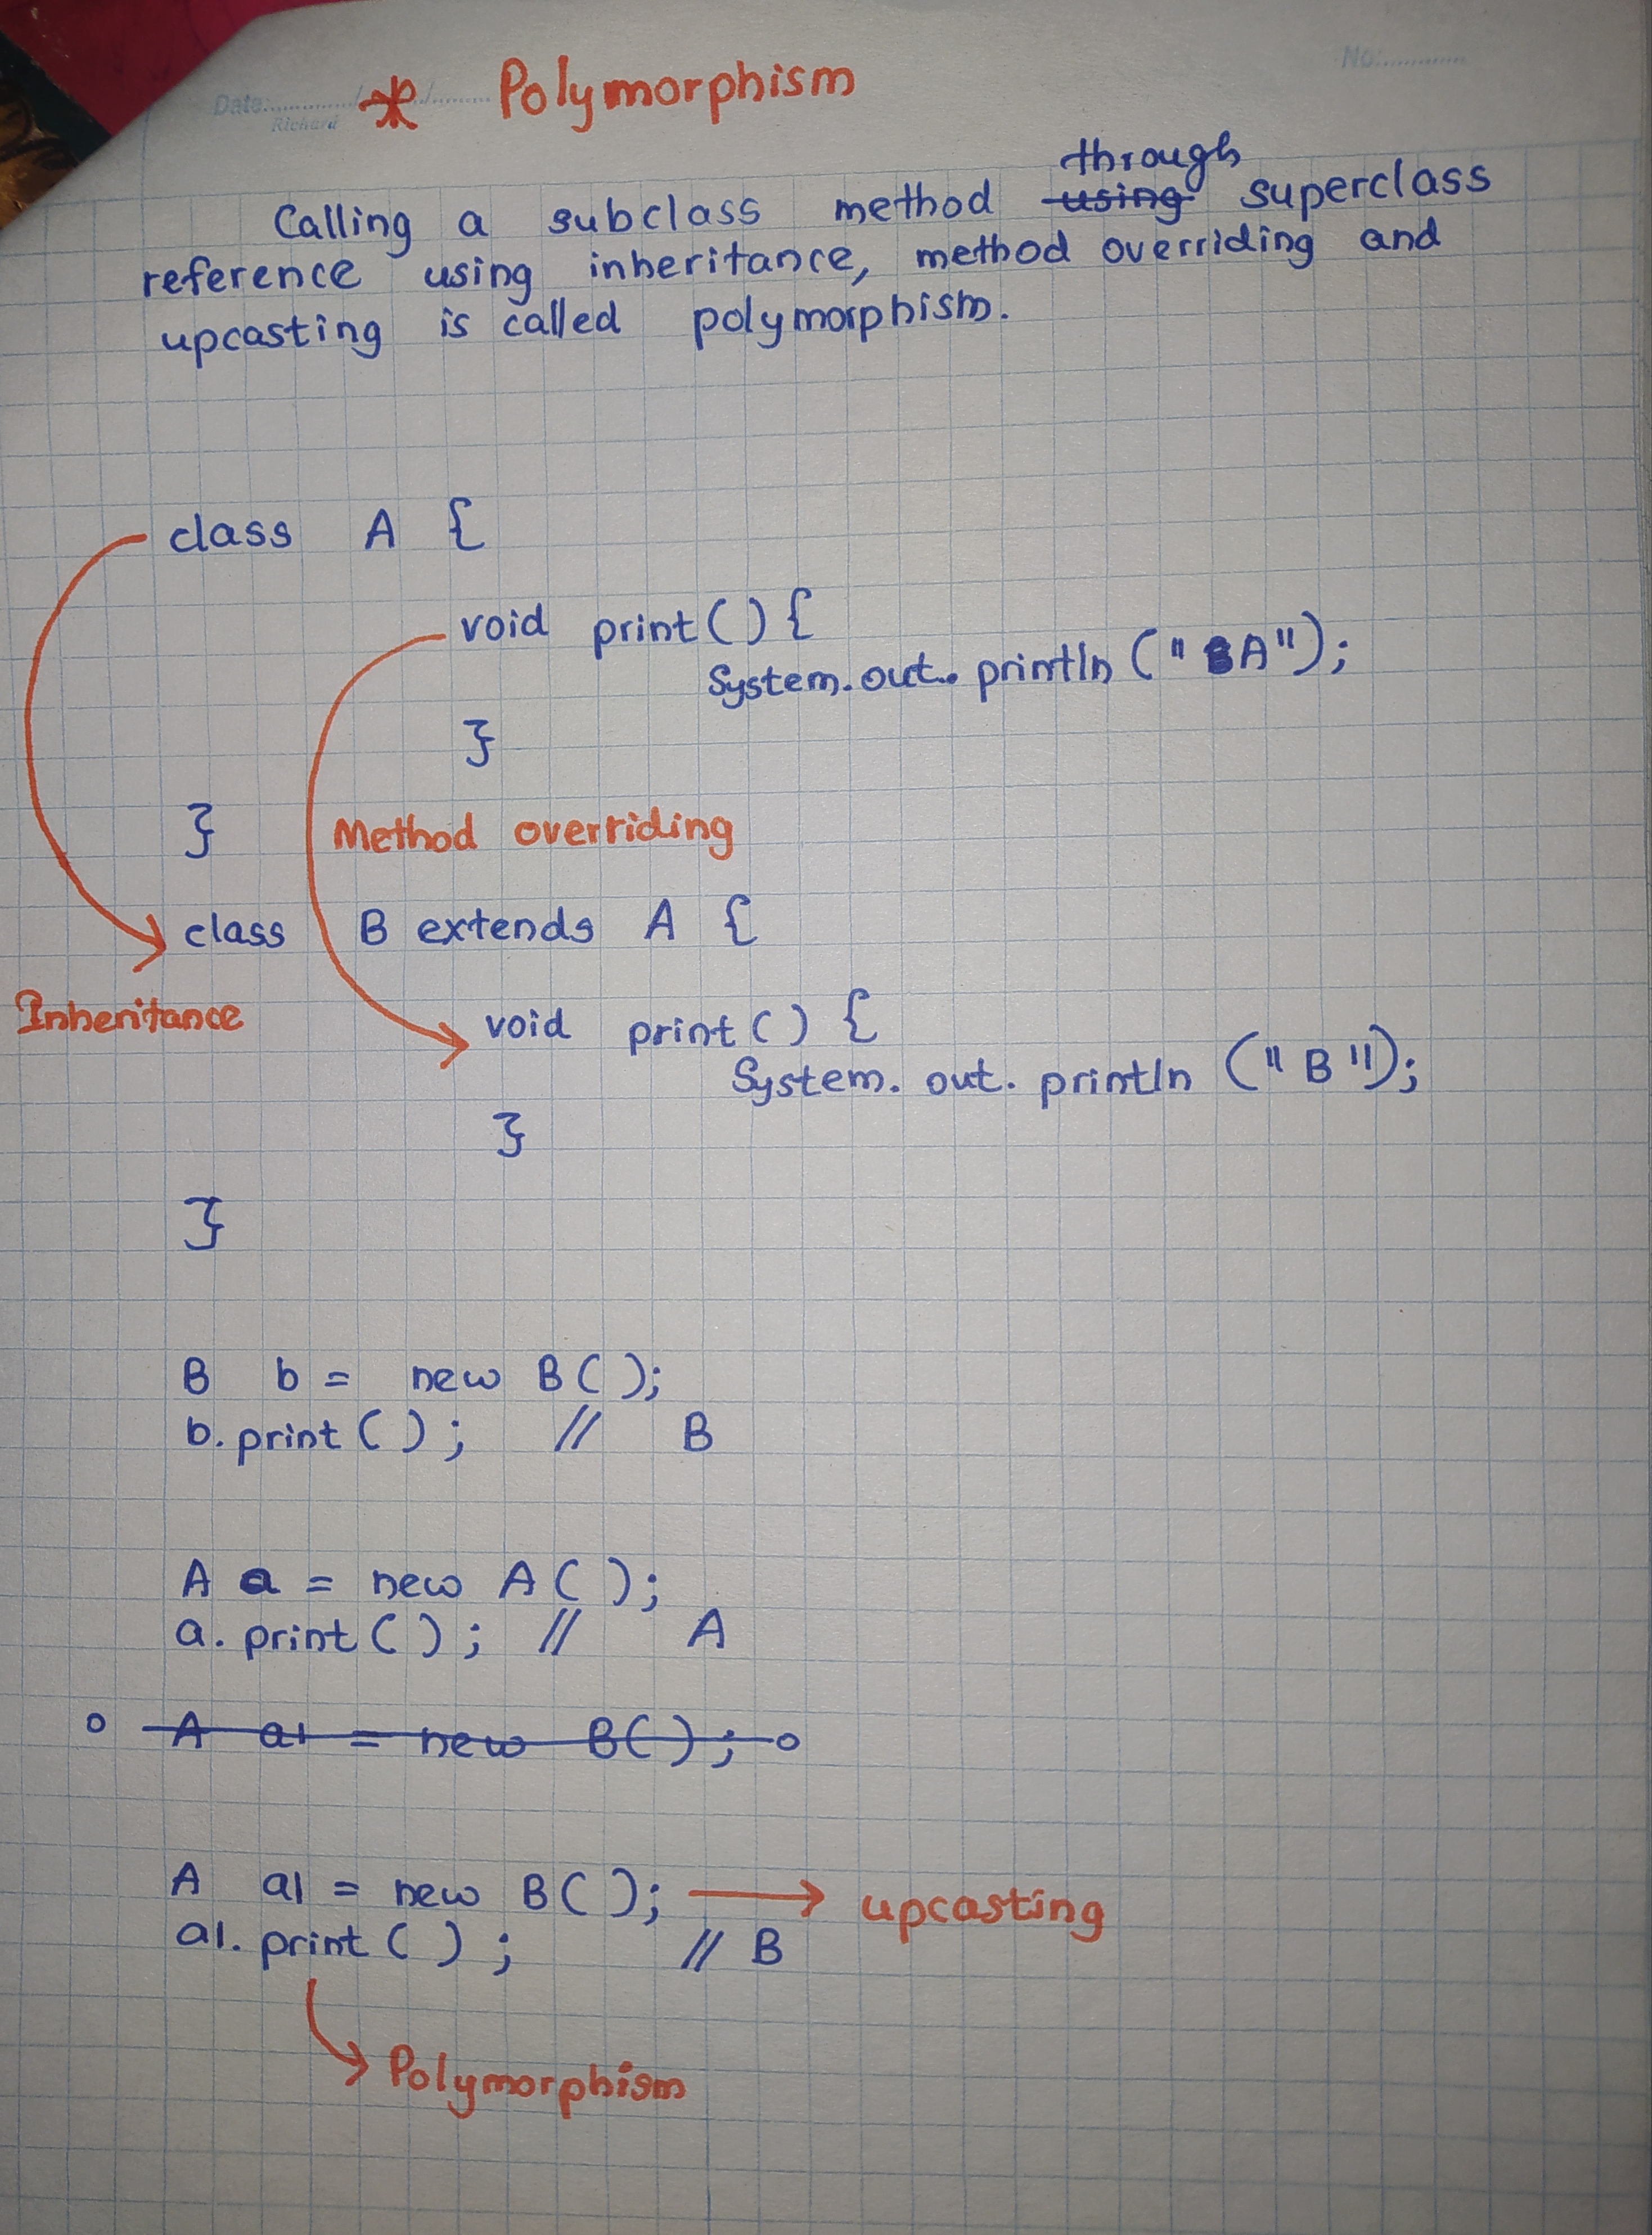 No:............
Date:............/........../..........
Richard
* Polymorphism
through
Calling a subclass method using superclass
reference using inheritance, method overriding and
upcasting is called polymorphism.
class A {
void print() {
System.out.println ("A");
}
}
Method overriding
class B extends A {
Inheritance
void print() {
System.out.println ("B");
}
}
B b = new B();
b.print(); // B
A a = new A();
a.print(); // A
A a1 = new B();
A a1 = new B(); → upcasting
a1.print(); // B
Polymorphism